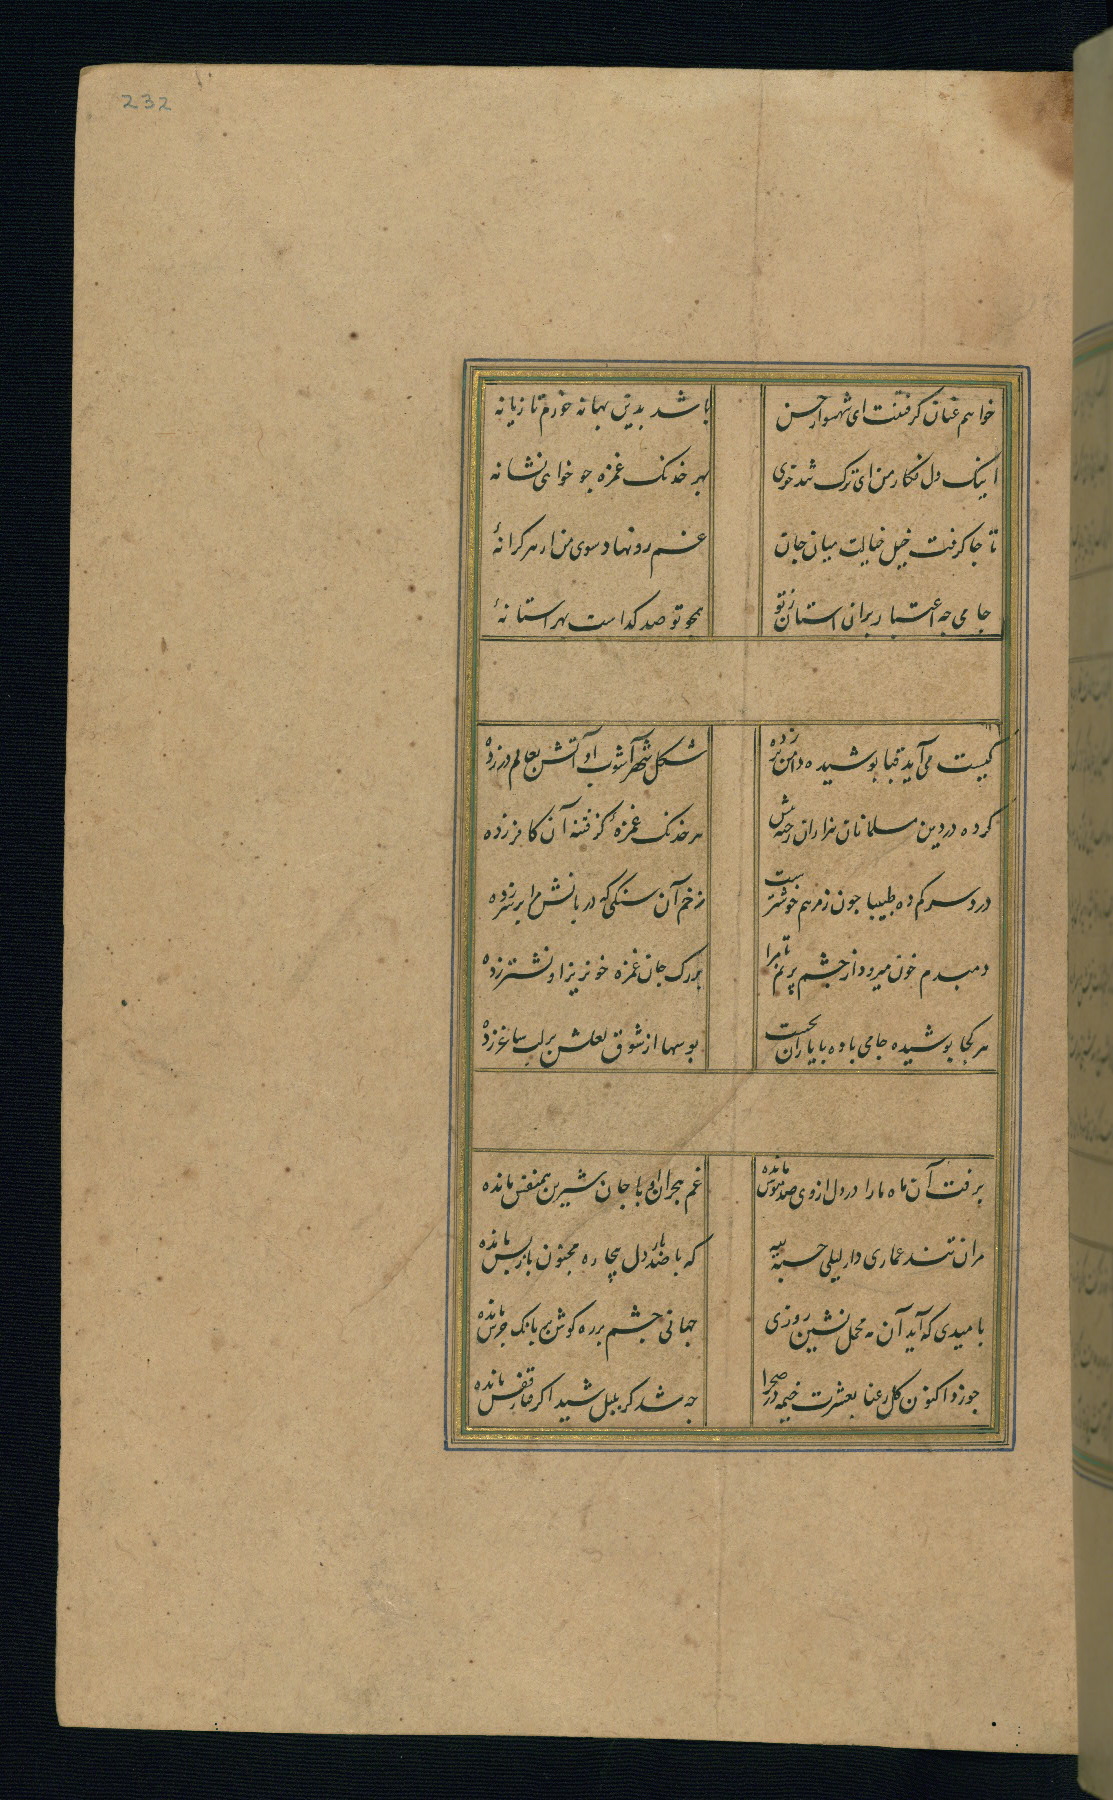 232
خواهم عنان گرفتنت ای شهسوار حسن باشد بدین بهانه خورم تازیانه
اینک دل فکار من ای ترک تندخوی بهر خدنک غمزه جو خواهی نشانه
تا جا کرفت خیل خیالت میان جان غم رو نهاد سوی من از هر کرانهٔ
جامی چه اعتبار برانی استان ز تو همچو تو صد کداست بهر استانهٔ
کیست می آید قبا پوشیده دامن بر زده شکل شهرآشوب او آتش بعالم در زده
کرده در دین مسلمانان هزاران رخنه بیش هر خدنک غمزهٔ کز فتنه آن کافر زده
درد سر کم ده طبیبا جون ز مرهم خوشترست زخم آن سنکی که دربانش مرا بر سر زده
دمبدم خون میرود از جشم پر نم تا مرا بر رک جان غمزه خونریز او نشتر زده
هر کجا پوشیده جامی باده با یاران بوسها از شوق لعلش بر لب ساغر زده
برفت آن ماه ما را در دل از وی صد هوس مانده غم هجران او با جان شیرین همنفس مانده
مران تند عماری دار لیلی حسبة لله که با صد بار دل بیچاره مجنون باز پس مانده
بامیدی که آید آن مه محمل نشین روزی جهانی جشم بر ره کوش بر بانک جرس مانده
جو زد اکنون کل رعنا بعشرت خیمه در صحرا چه شد کر بلبل شیدا کرفتار قفس مانده